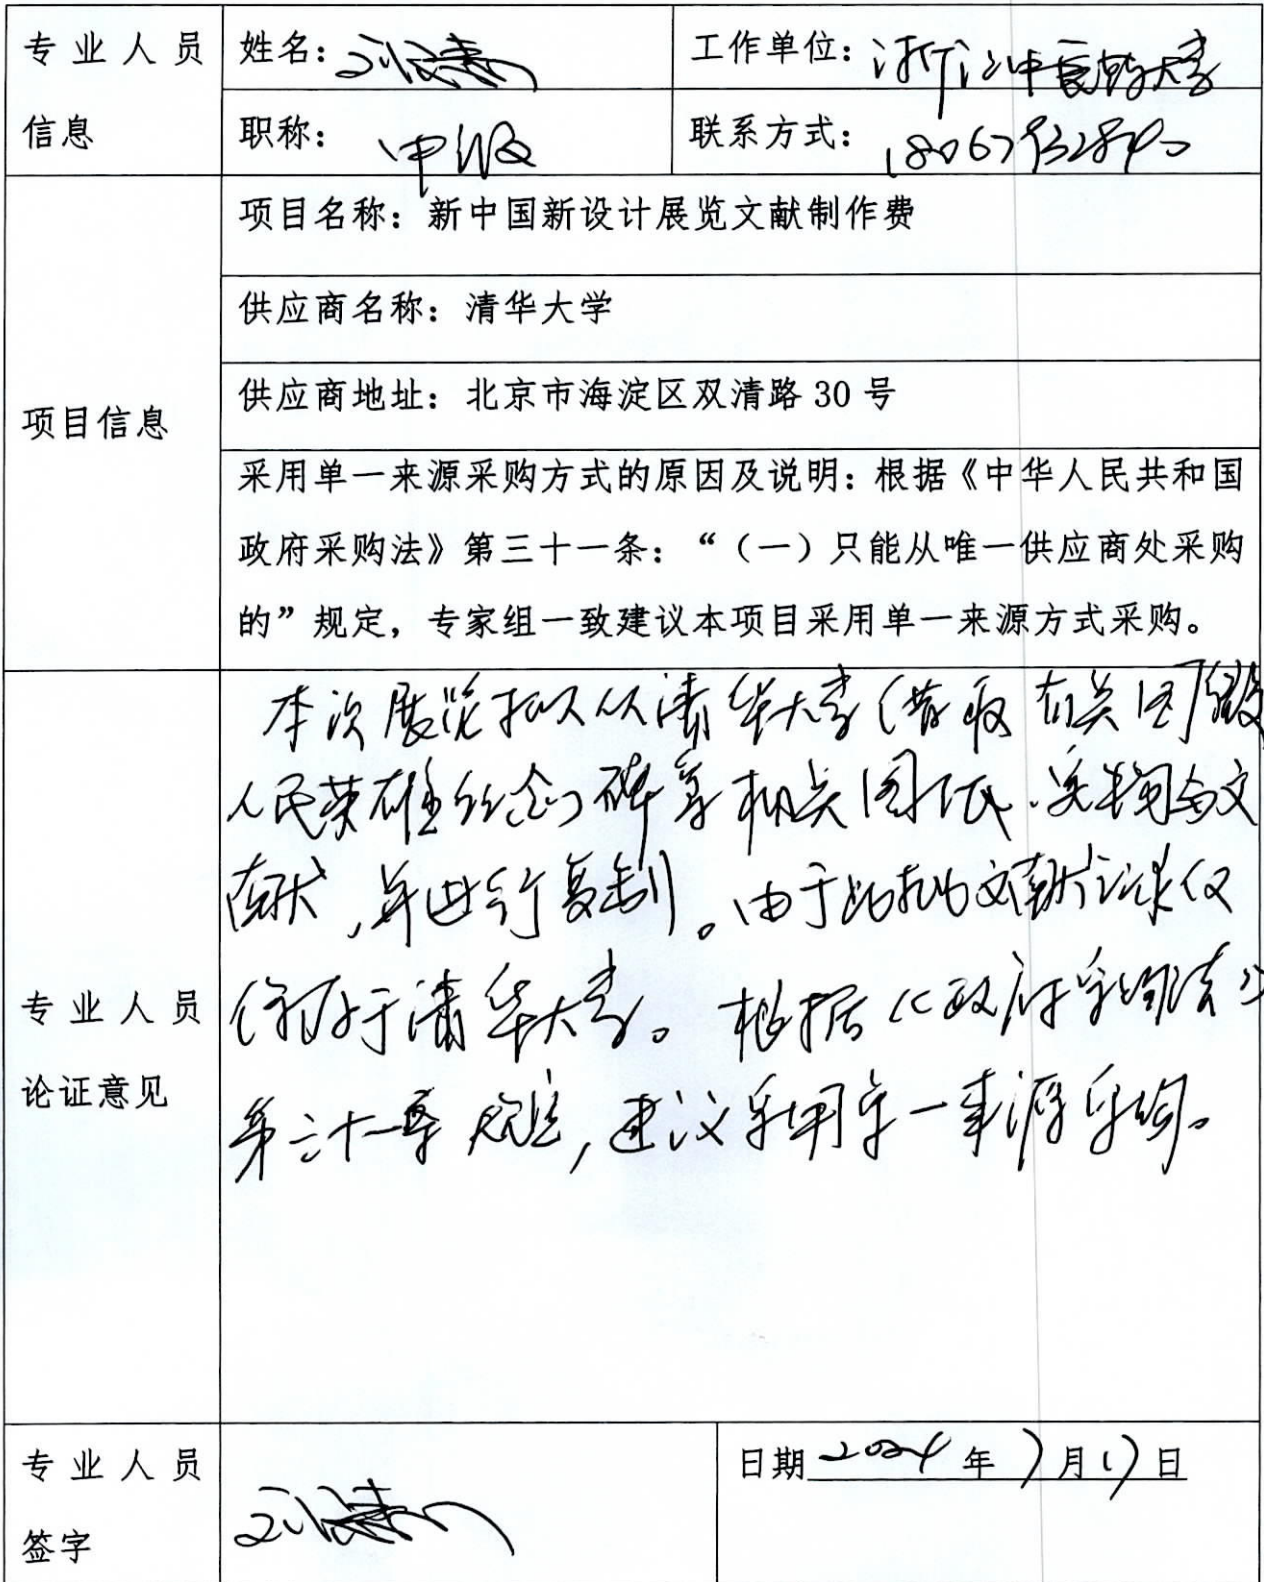 专业人员信息
姓名：
工作单位：浙江中医药大学
职称：中级
联系方式：
项目信息
项目名称：新中国新设计展览文献制作费
供应商名称：清华大学
供应商地址：北京市海淀区双清路 30 号
采用单一来源采购方式的原因及说明：根据《中华人民共和国
政府采购法》第三十一条：“（一）只能从唯一供应商处采购
的”规定，专家组一致建议本项目采用单一来源方式采购。
专业人员
论证意见
本次展览拟从清华大学借取有关国徽
人民英雄纪念碑等相关图纸、实物与文
献，并进行复制。由于此批文献记录仅
保存于清华大学。根据《政府采购法》
第三十一条规定，建议采用单一来源采购。
专业人员
签字
日期 2024 年 7 月 17 日